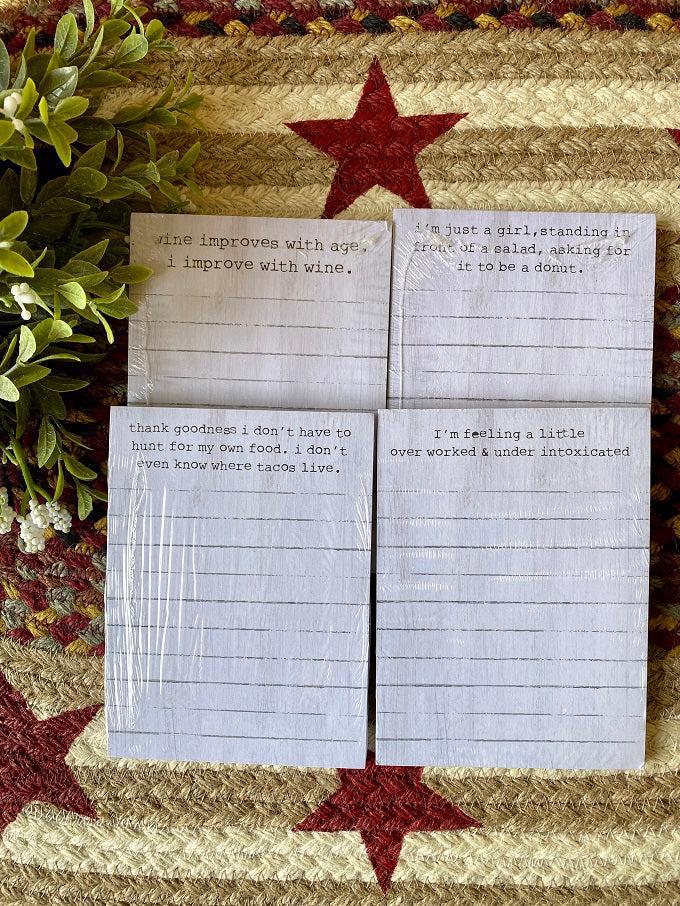 wine improves with age.
i improve with wine.
i'm just a girl,standing in
front of a salad, asking for
it to be a donut.
thank goodness i don't have to
hunt for my own food. i don't
even know where tacos live.
I'm feeling a little
over worked & under intoxicated